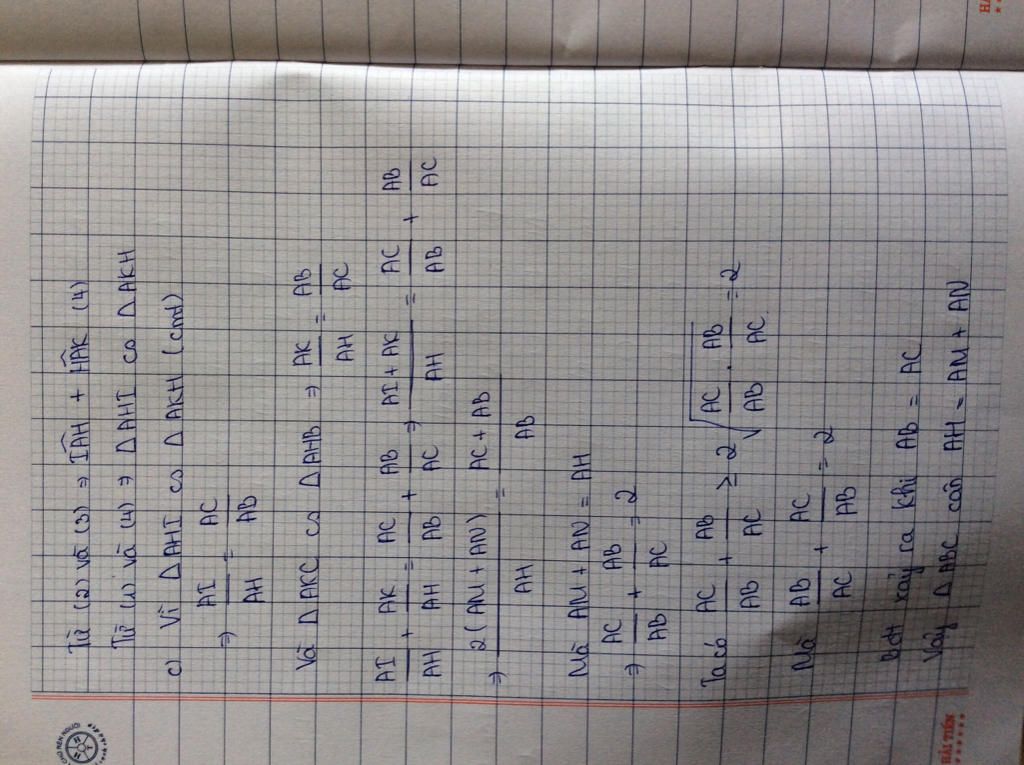 Từ (2) và (3) ⇒ IÂH + HÂK (4)
Từ (1) và (4) ⇒ ΔAHI ∽ ΔAKH
c) Vì ΔAHI ∽ ΔAKH (cmt)
⇒ AI/AH = AC/AB
Và ΔAKC ∽ ΔAHB ⇒ AK/AH = AB/AC
AI/AH + AK/AH = AC/AB + AB/AC ⇒ (AI + AK)/AH = AC/AB + AB/AC
⇒ 2(AM + AN)/AH = (AC + AB)/AB
Mà AM + AN = AH
⇒ AC/AB + AB/AC = 2
Ta có AC/AB + AB/AC ≥ 2√(AC/AB . AB/AC) = 2
Mà AB/AC + AC/AB = 2
BĐT xảy ra khi AB = AC
Vậy ΔABC cân AH = AM + AN
HẢI TIẾN